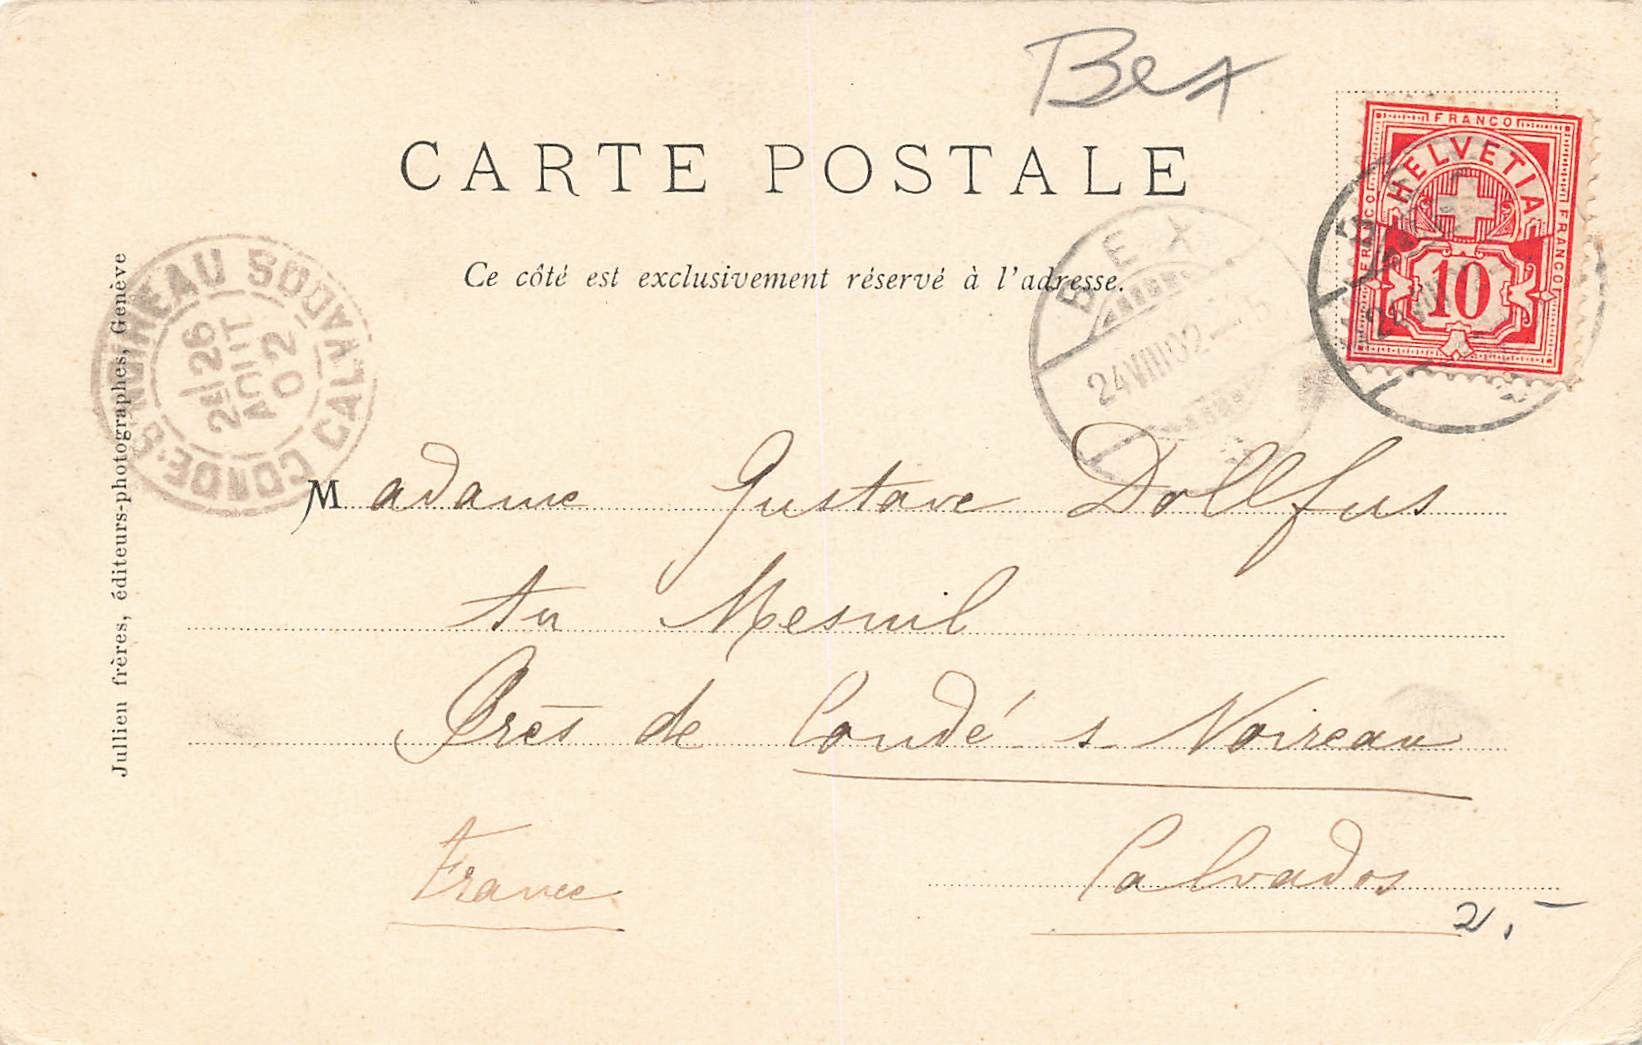 Bex
CARTE POSTALE
Ce côté est exclusivement réservé à l'adresse.
FRANCO
HELVETIA
FRANCO
FRANCO
10
BEX
24 VIII 02
CONDÉ-S-NOIREAU CALVADOS
2E 26
AOUT
02
Madame Gustave Dollfus
Au Mesnil
Près de Condé s Noireau
Calvados
France
2.-
Jullien frères, éditeurs-photographes, Genève